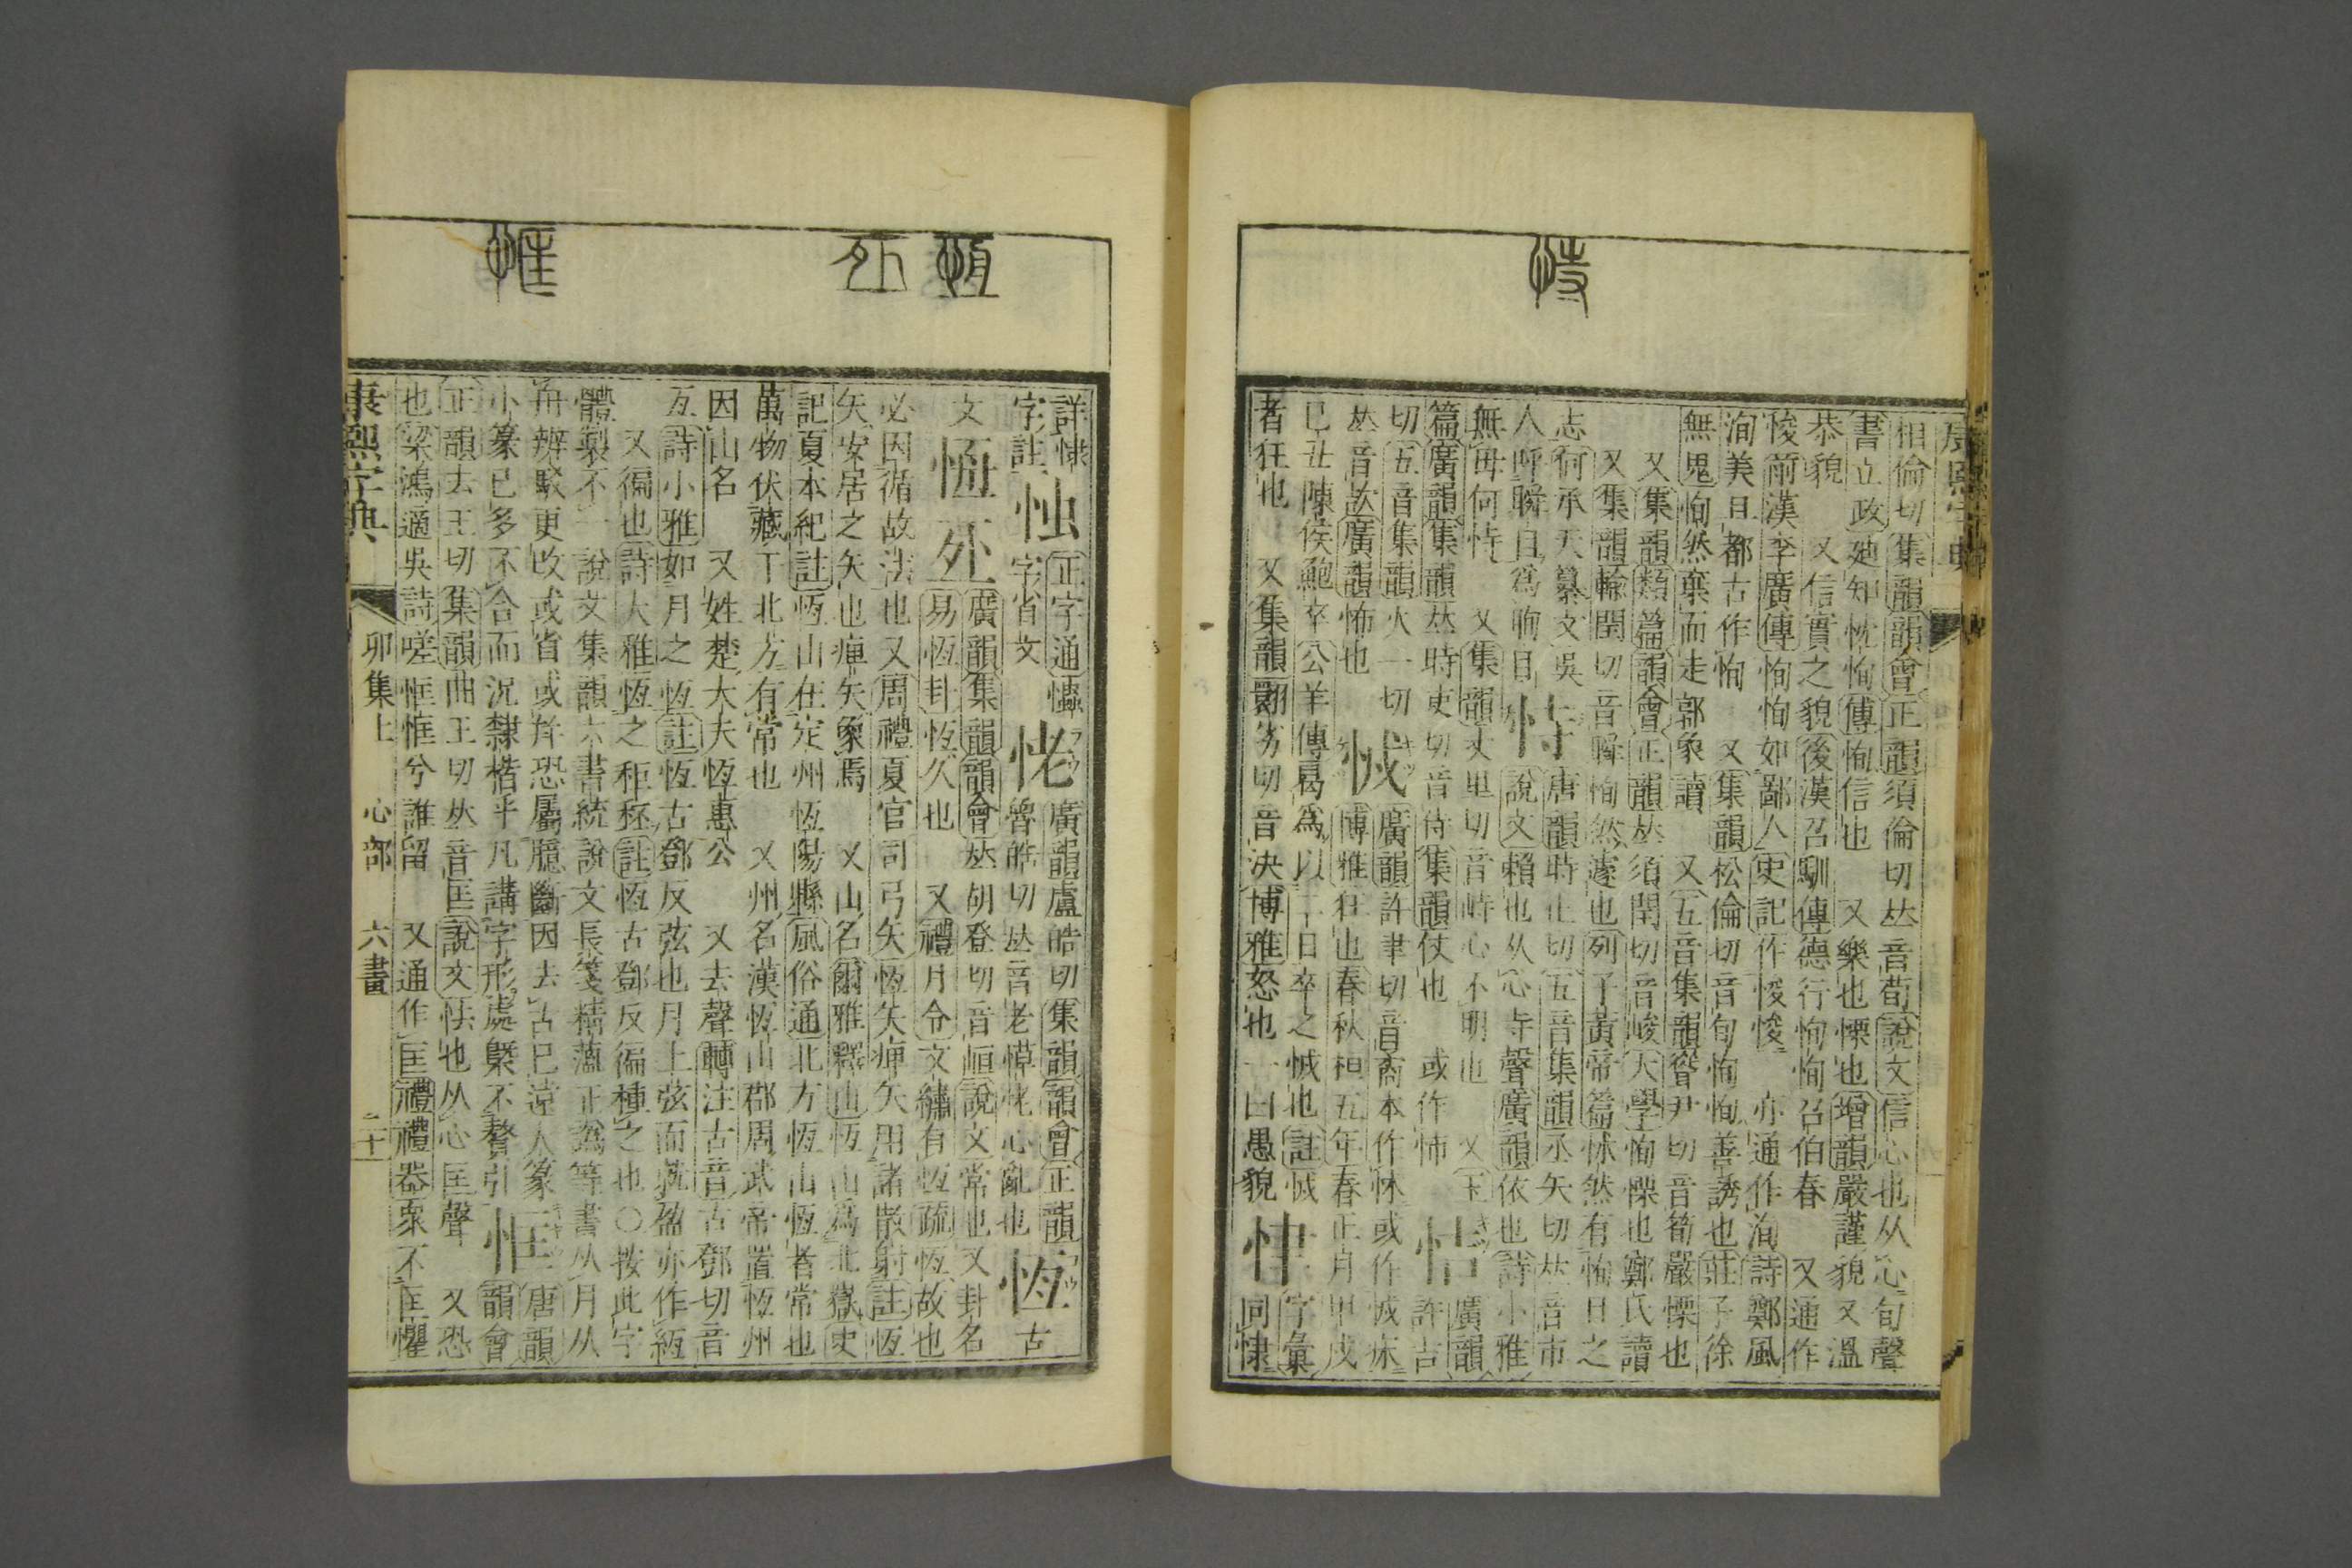 恃
相倫切集韻韻會正韻須倫切𠀤音荀說文信心也从心旬聲
書立政廸知忱恂傳恂信也　又樂也慄也增韻嚴謹貌又溫
恭貌　又信實之貌後漢召馴傳德行恂恂召伯春　又通作
悛前漢李廣傳恂恂如鄙人史記作悛悛　亦通作洵詩鄭風
洵美且都古作恂　又集韻松倫切音旬恂恂善誘也莊子徐
無鬼恂然棄而走郭象讀　又五音集韻𥈭尹切音筍嚴慄也
又集韻類篇韻會正韻𠀤須閏切音峻大學恂慄也鄭氏讀
又集韻輸閏切音瞬恂然遽也列子黃帝篇怵然有恂目之
志何承天纂文吳
人呼瞬目爲恂目
恃
唐韻時止切五音集韻丞矢切𠀤音市
說文賴也从心寺聲廣韻依也詩小雅
無母何恃　又集韻丈里切音峙心不明也　又玉
篇廣韻集韻𠀤時吏切音侍集韻仗也　或作㤭
恄
廣韻
許吉
切五音集韻火一切
𠀤音欯廣韻怖也
㤜
廣韻許聿切音矞本作怵或作㤜㳜
博雅狂也春秋桓五年春正月甲戌
己丑陳侯鮑卒公羊傳曷爲以二日卒之㤜也註㤜
者狂也　又集韻翾劣切音決博雅怒也一曰愚貌
字彙
同悚
恆
外
惟
詳悚
字註
㤝
正字通懾
字省文
恅
廣韻盧皓切集韻韻會正韻
魯皓切𠀤音老愺恅心亂也
恆
古
文
𠄨
廣韻集韻韻會𠀤胡登切音峘說文常也又卦名
易恆卦恆久也　又禮月令文繡有恆疏恆故也
必因循故法也又周禮夏官司弓矢恆矢痺矢用諸散射註恆
矢安居之矢也痺矢象焉　又山名爾雅釋山恆山爲北嶽史
記夏本紀註恆山在定州恆陽縣風俗通北方恆山恆者常也
萬物伏藏于北方有常也　又州名漢恆山郡周武帝置恆州
因山名　又姓楚大夫恆惠公　又去聲轉注古音古鄧切音
亙詩小雅如月之恆註恆古鄧反弦也月上弦而就盈亦作緪
又徧也詩大雅恆之秬秠註恆古鄧反徧種之也○按此字
體製不一說文集韻六書統說文長箋精蕰正譌等書从月从
舟辨駁更改或省或斥恐屬臆斷因去古已遠人篆一
小篆已多不合而況隸楷乎凡講字形處槩不贅引
恇
唐韻
韻會
正韻去王切集韻曲王切𠀤音匡說文怯也从心匡聲　又恐
也梁鴻適吳詩嗟恇恇兮誰留　又通作匡禮禮器衆不匡懼
康熙字典　卯集上　心部　六畫　二十